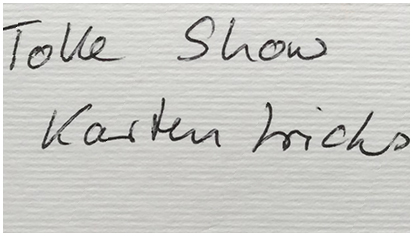 Tolle Show
Kartentricks